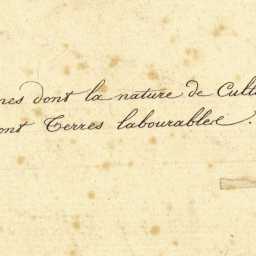 nes dont la nature de Cult
ont Terres labourables.